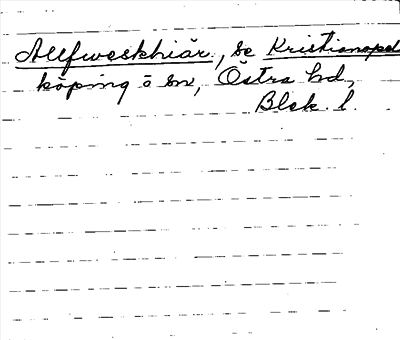 Allfwesskhiär, se Kristianopel
köping o sn, Östra hd,
Blek. l.